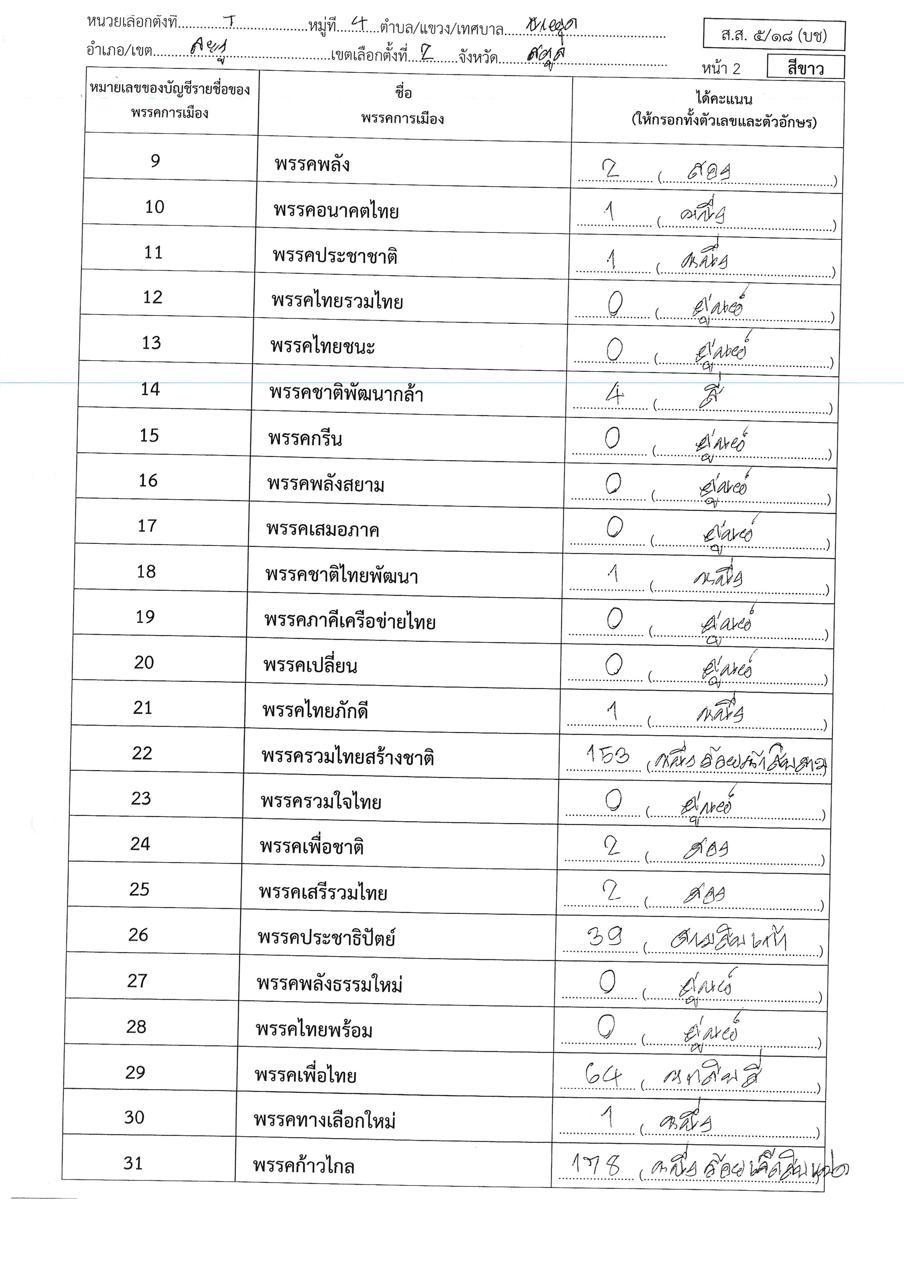 หน่วยเลือกตั้งที่ 1 หมู่ที่ 4 ตำบล/แขวง/เทศบาล
ส.ส. ๕/๑๘ (บช)
อำเภอ/เขต ละงู เขตเลือกตั้งที่ 2 จังหวัด สตูล
หน้า 2 สีขาว
หมายเลขของบัญชีรายชื่อของพรรคการเมือง ชื่อพรรคการเมือง ได้คะแนน (ให้กรอกทั้งตัวเลขและตัวอักษร)
9 พรรคพลัง 2 (สอง)
10 พรรคอนาคตไทย 1 (หนึ่ง)
11 พรรคประชาชาติ 1 (หนึ่ง)
12 พรรคไทยรวมไทย 0 (ศูนย์)
13 พรรคไทยชนะ 0 (ศูนย์)
14 พรรคชาติพัฒนากล้า 4 (สี่)
15 พรรคกรีน 0 (ศูนย์)
16 พรรคพลังสยาม 0 (ศูนย์)
17 พรรคเสมอภาค 0 (ศูนย์)
18 พรรคชาติไทยพัฒนา 1 (หนึ่ง)
19 พรรคภาคีเครือข่ายไทย 0 (ศูนย์)
20 พรรคเปลี่ยน 0 (ศูนย์)
21 พรรคไทยภักดี 1 (หนึ่ง)
22 พรรครวมไทยสร้างชาติ 153 (หนึ่งร้อยห้าสิบสาม)
23 พรรครวมใจไทย 0 (ศูนย์)
24 พรรคเพื่อชาติ 2 (สอง)
25 พรรคเสรีรวมไทย 2 (สอง)
26 พรรคประชาธิปัตย์ 39 (สามสิบเก้า)
27 พรรคพลังธรรมใหม่ 0 (ศูนย์)
28 พรรคไทยพร้อม 0 (ศูนย์)
29 พรรคเพื่อไทย 64 (หกสิบสี่)
30 พรรคทางเลือกใหม่ 1 (หนึ่ง)
31 พรรคก้าวไกล 178 (หนึ่งร้อยเจ็ดสิบแปด)